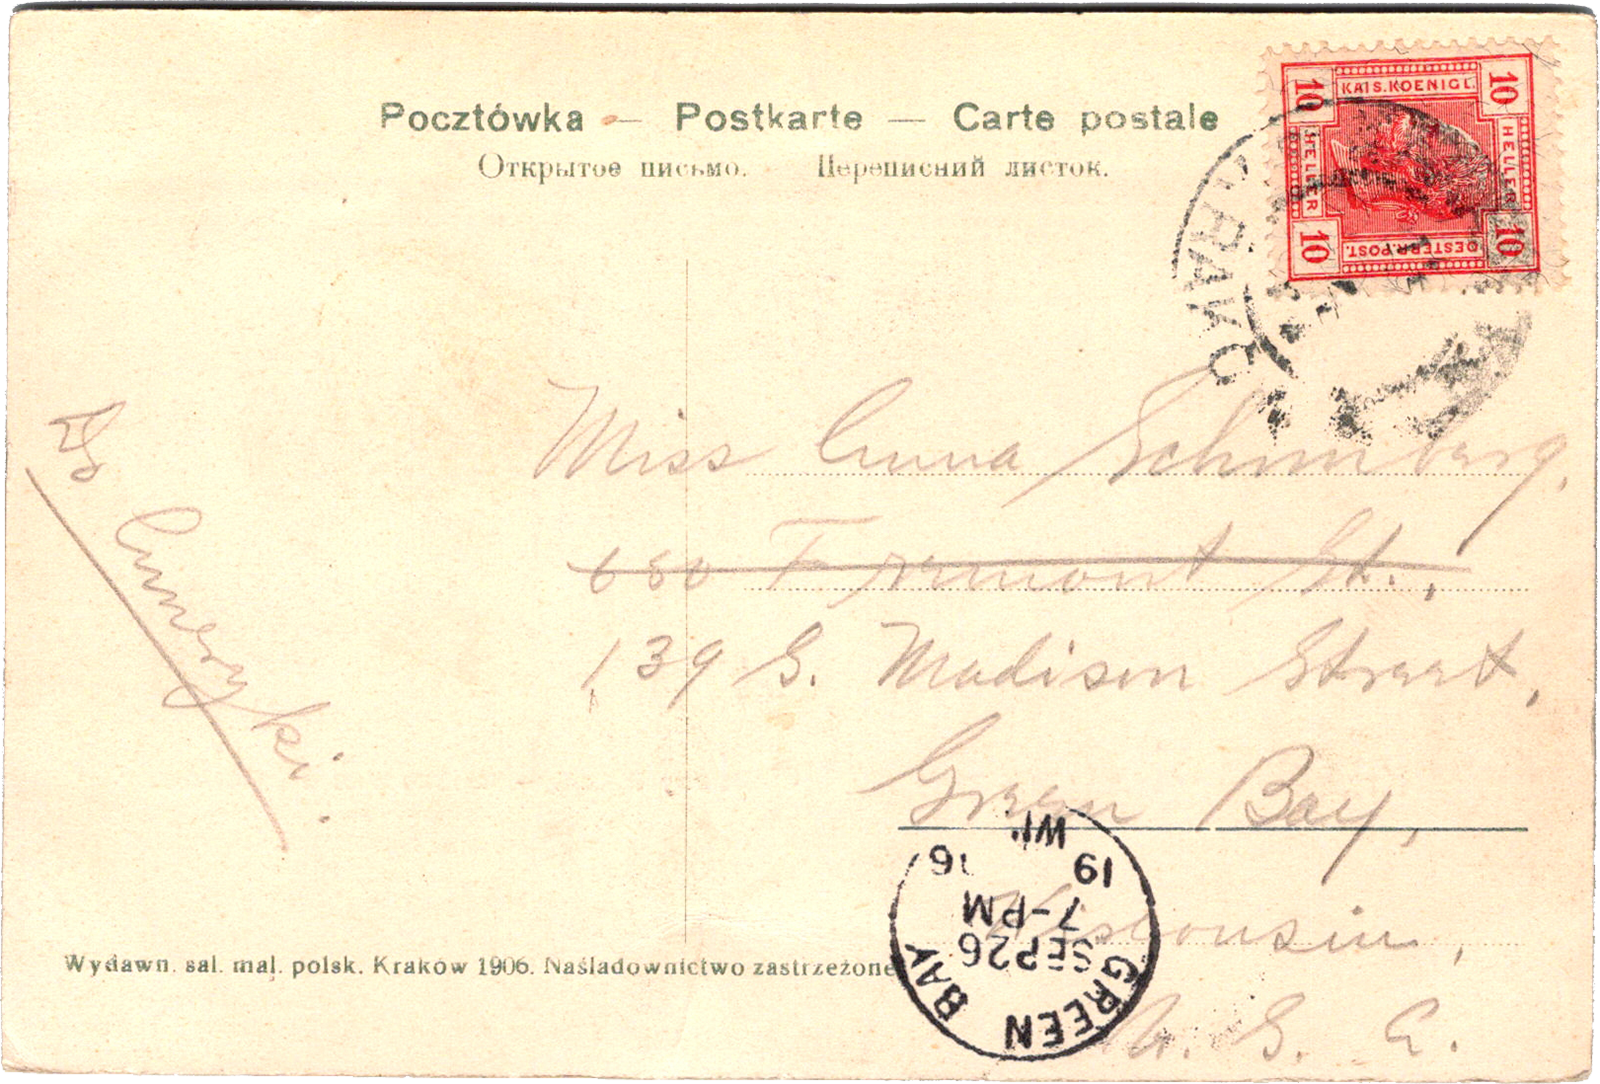 Pocztówka — Postkarte — Carte postale
Открытое письмо. Переписний листок.
10 KAIS. KOENIGL. 10
HELLER HELLER
10 OESTERR. POST. 10
KRAKÓ
Miss Anna Schumberg,
680 Fremont St.,
139 S. Madison Street,
Green Bay,
Wisconsin,
U. S. A.
GREEN BAY
SEP 26
7-PM
19 06
WIS
Wydawn. sal. mal. polsk. Kraków 1906. Naśladownictwo zastrzeżone